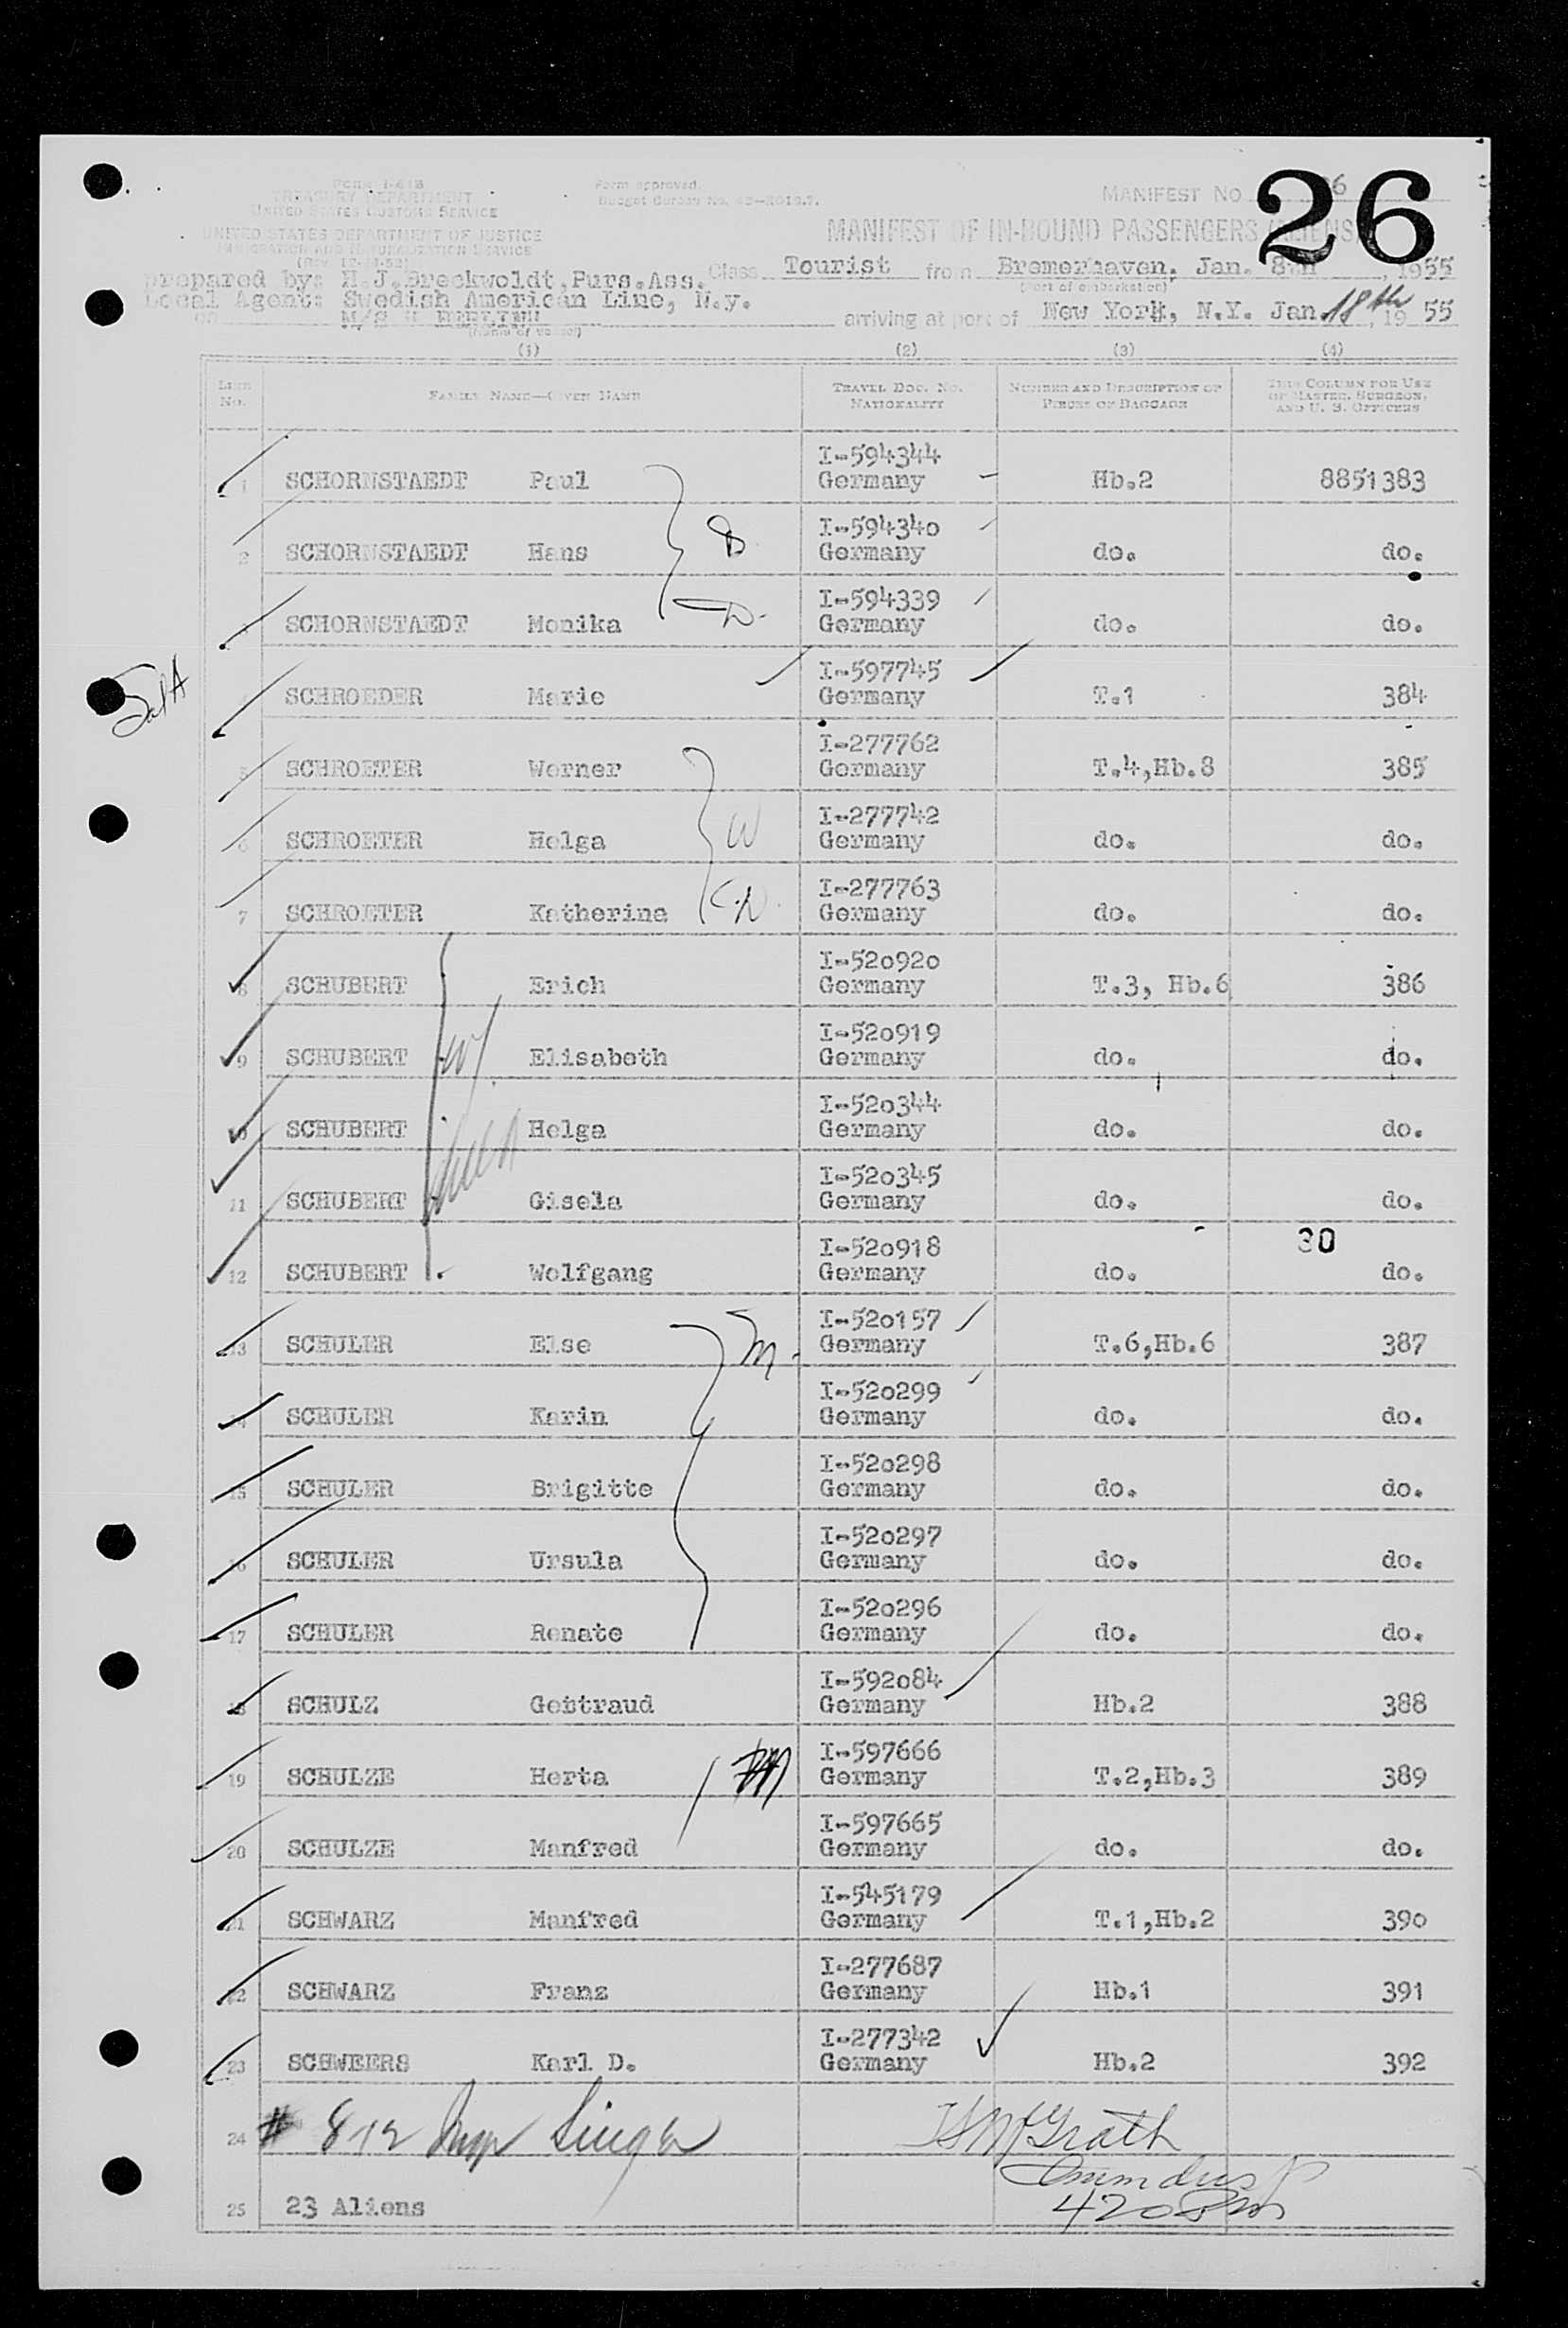 26
Form I-418
TREASURY DEPARTMENT
UNITED STATES CUSTOMS SERVICE
UNITED STATES DEPARTMENT OF JUSTICE
IMMIGRATION AND NATURALIZATION SERVICE
Form approved.
Budget Bureau No.
MANIFEST NO. 26
MANIFEST OF IN-BOUND PASSENGERS (ALIENS)
prepared by: H.J.Breckwoldt,Purs.Ass. Class Tourist from Bremerhaven, Jan. 8th, 1955
(Port of embarkation)
Local Agent: Swedish American Line, N.y.
on M/S
(Name of vessel)
arriving at port of New York, N.Y. Jan. 18th, 19 55
(1) (2) (3) (4)
LINE NO. FAMILY NAME—GIVEN NAME TRAVEL DOC. NO. NATIONALITY NUMBER AND DESCRIPTION OF PIECES OF BAGGAGE THIS COLUMN FOR USE OF MASTER, SURGEON, AND U. S. OFFICERS
I-594344
1 SCHORNSTAEDT Paul Germany Hb.2 8851383
I-594340
2 SCHORNSTAEDT Hans Germany do. do.
I-594339
SCHORNSTAEDT Monika Germany do. do.
I-597745
SCHROEDER Marie Germany T.1 384
I-277762
5 SCHROETER Werner Germany T.4,Hb.8 385
I-277742
6 SCHROETER Helga Germany do. do.
I-277763
7 SCHROETER Katherina Germany do. do.
I-520920
8 SCHUBERT Erich Germany T.3, Hb.6 386
I-520919
9 SCHUBERT Elisabeth Germany do. do.
I-520344
10 SCHUBERT Helga Germany do. do.
I-520345
11 SCHUBERT Gisela Germany do. do.
I-520918 30
12 SCHUBERT Wolfgang Germany do. do.
I-520157
13 SCHULER Else Germany T.6,Hb.6 387
I-520299
14 SCHULER Karin Germany do. do.
I-520298
15 SCHULER Brigitte Germany do. do.
I-520297
16 SCHULER Ursula Germany do. do.
I-520296
17 SCHULER Renate Germany do. do.
I-592084
18 SCHULZ Gertraud Germany Hb.2 388
I-597666
19 SCHULZE Herta Germany T.2,Hb.3 389
I-597665
20 SCHULZE Manfred Germany do. do.
I-545179
21 SCHWARZ Manfred Germany T.1,Hb.2 390
I-277687
22 SCHWARZ Franz Germany Hb.1 391
I-277342
23 SCHWEERS Karl D. Germany Hb.2 392
24 # 812 Insp Singer McGrath
25 23 Aliens